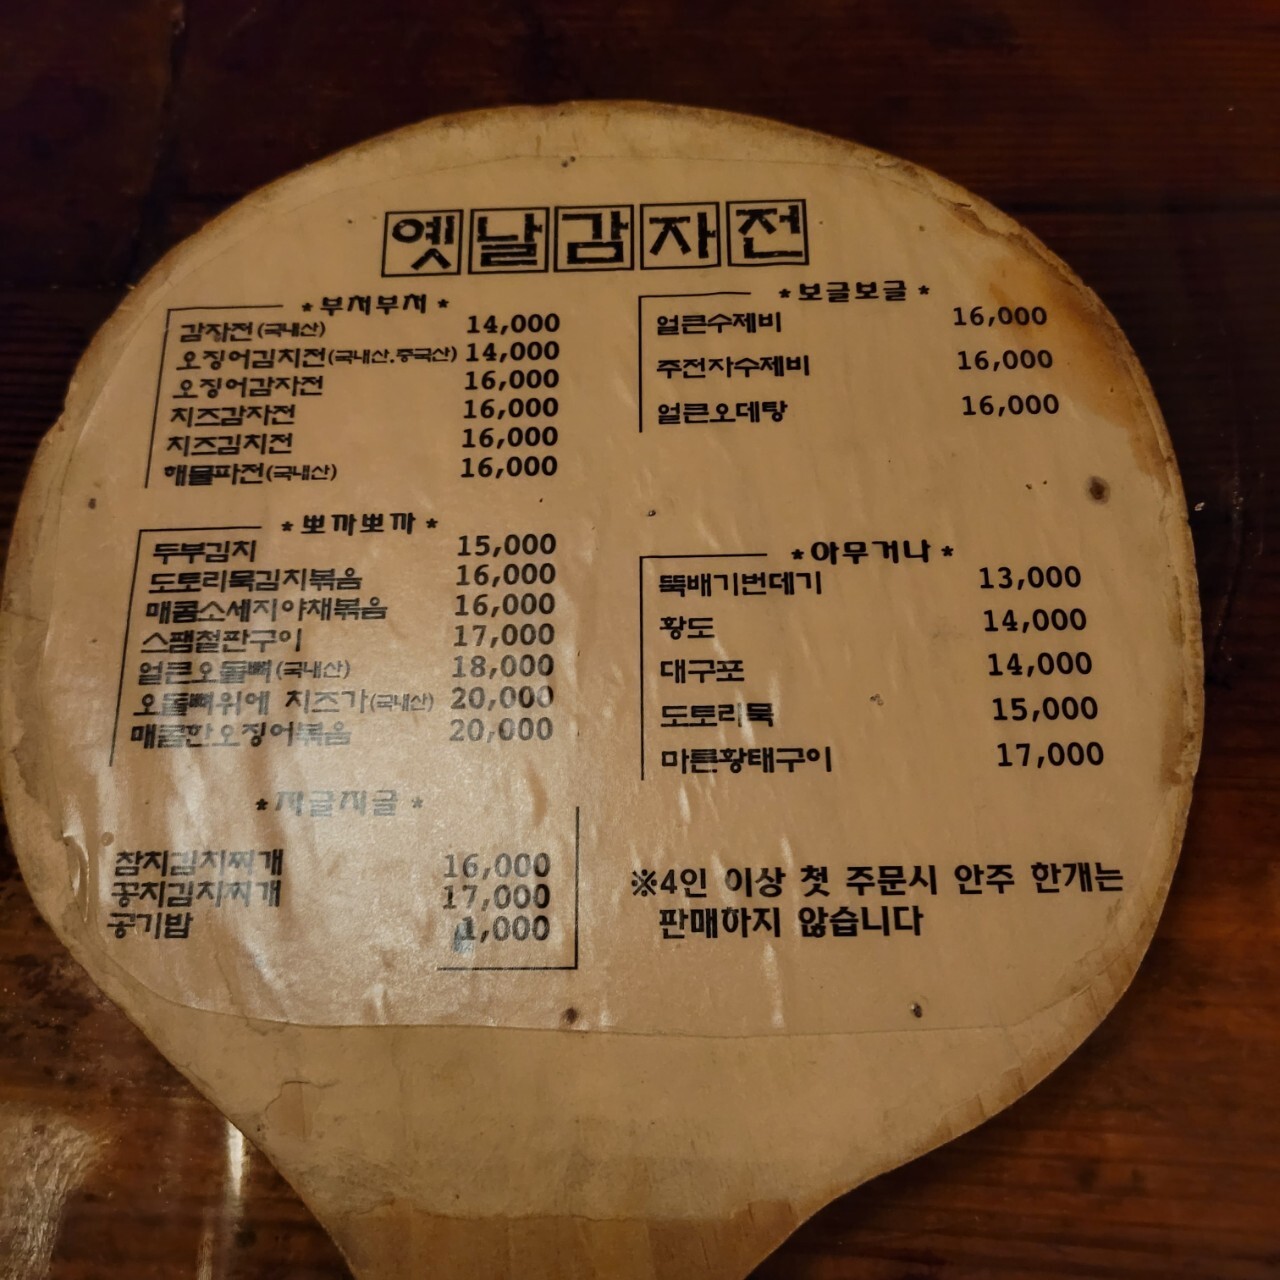 옛날감자전
*부쳐부쳐*
감자전(국내산) 14,000
오징어김치전(국내산.중국산) 14,000
오징어감자전 16,000
치즈감자전 16,000
치즈김치전 16,000
해물파전(국내산) 16,000
*뽀까뽀까*
두부김치 15,000
도토리묵김치볶음 16,000
매콤소세지야채볶음 16,000
스팸철판구이 17,000
얼큰오돌뼈(국내산) 18,000
오돌뼈위에 치즈가(국내산) 20,000
매콤한오징어볶음 20,000
*지글지글*
참치김치찌개 16,000
꽁치김치찌개 17,000
공기밥 1,000
*보글보글*
얼큰수제비 16,000
주전자수제비 16,000
얼큰오데탕 16,000
*아무거나*
뚝배기번데기 13,000
황도 14,000
대구포 14,000
도토리묵 15,000
마른황태구이 17,000
※4인 이상 첫 주문시 안주 한개는
판매하지 않습니다